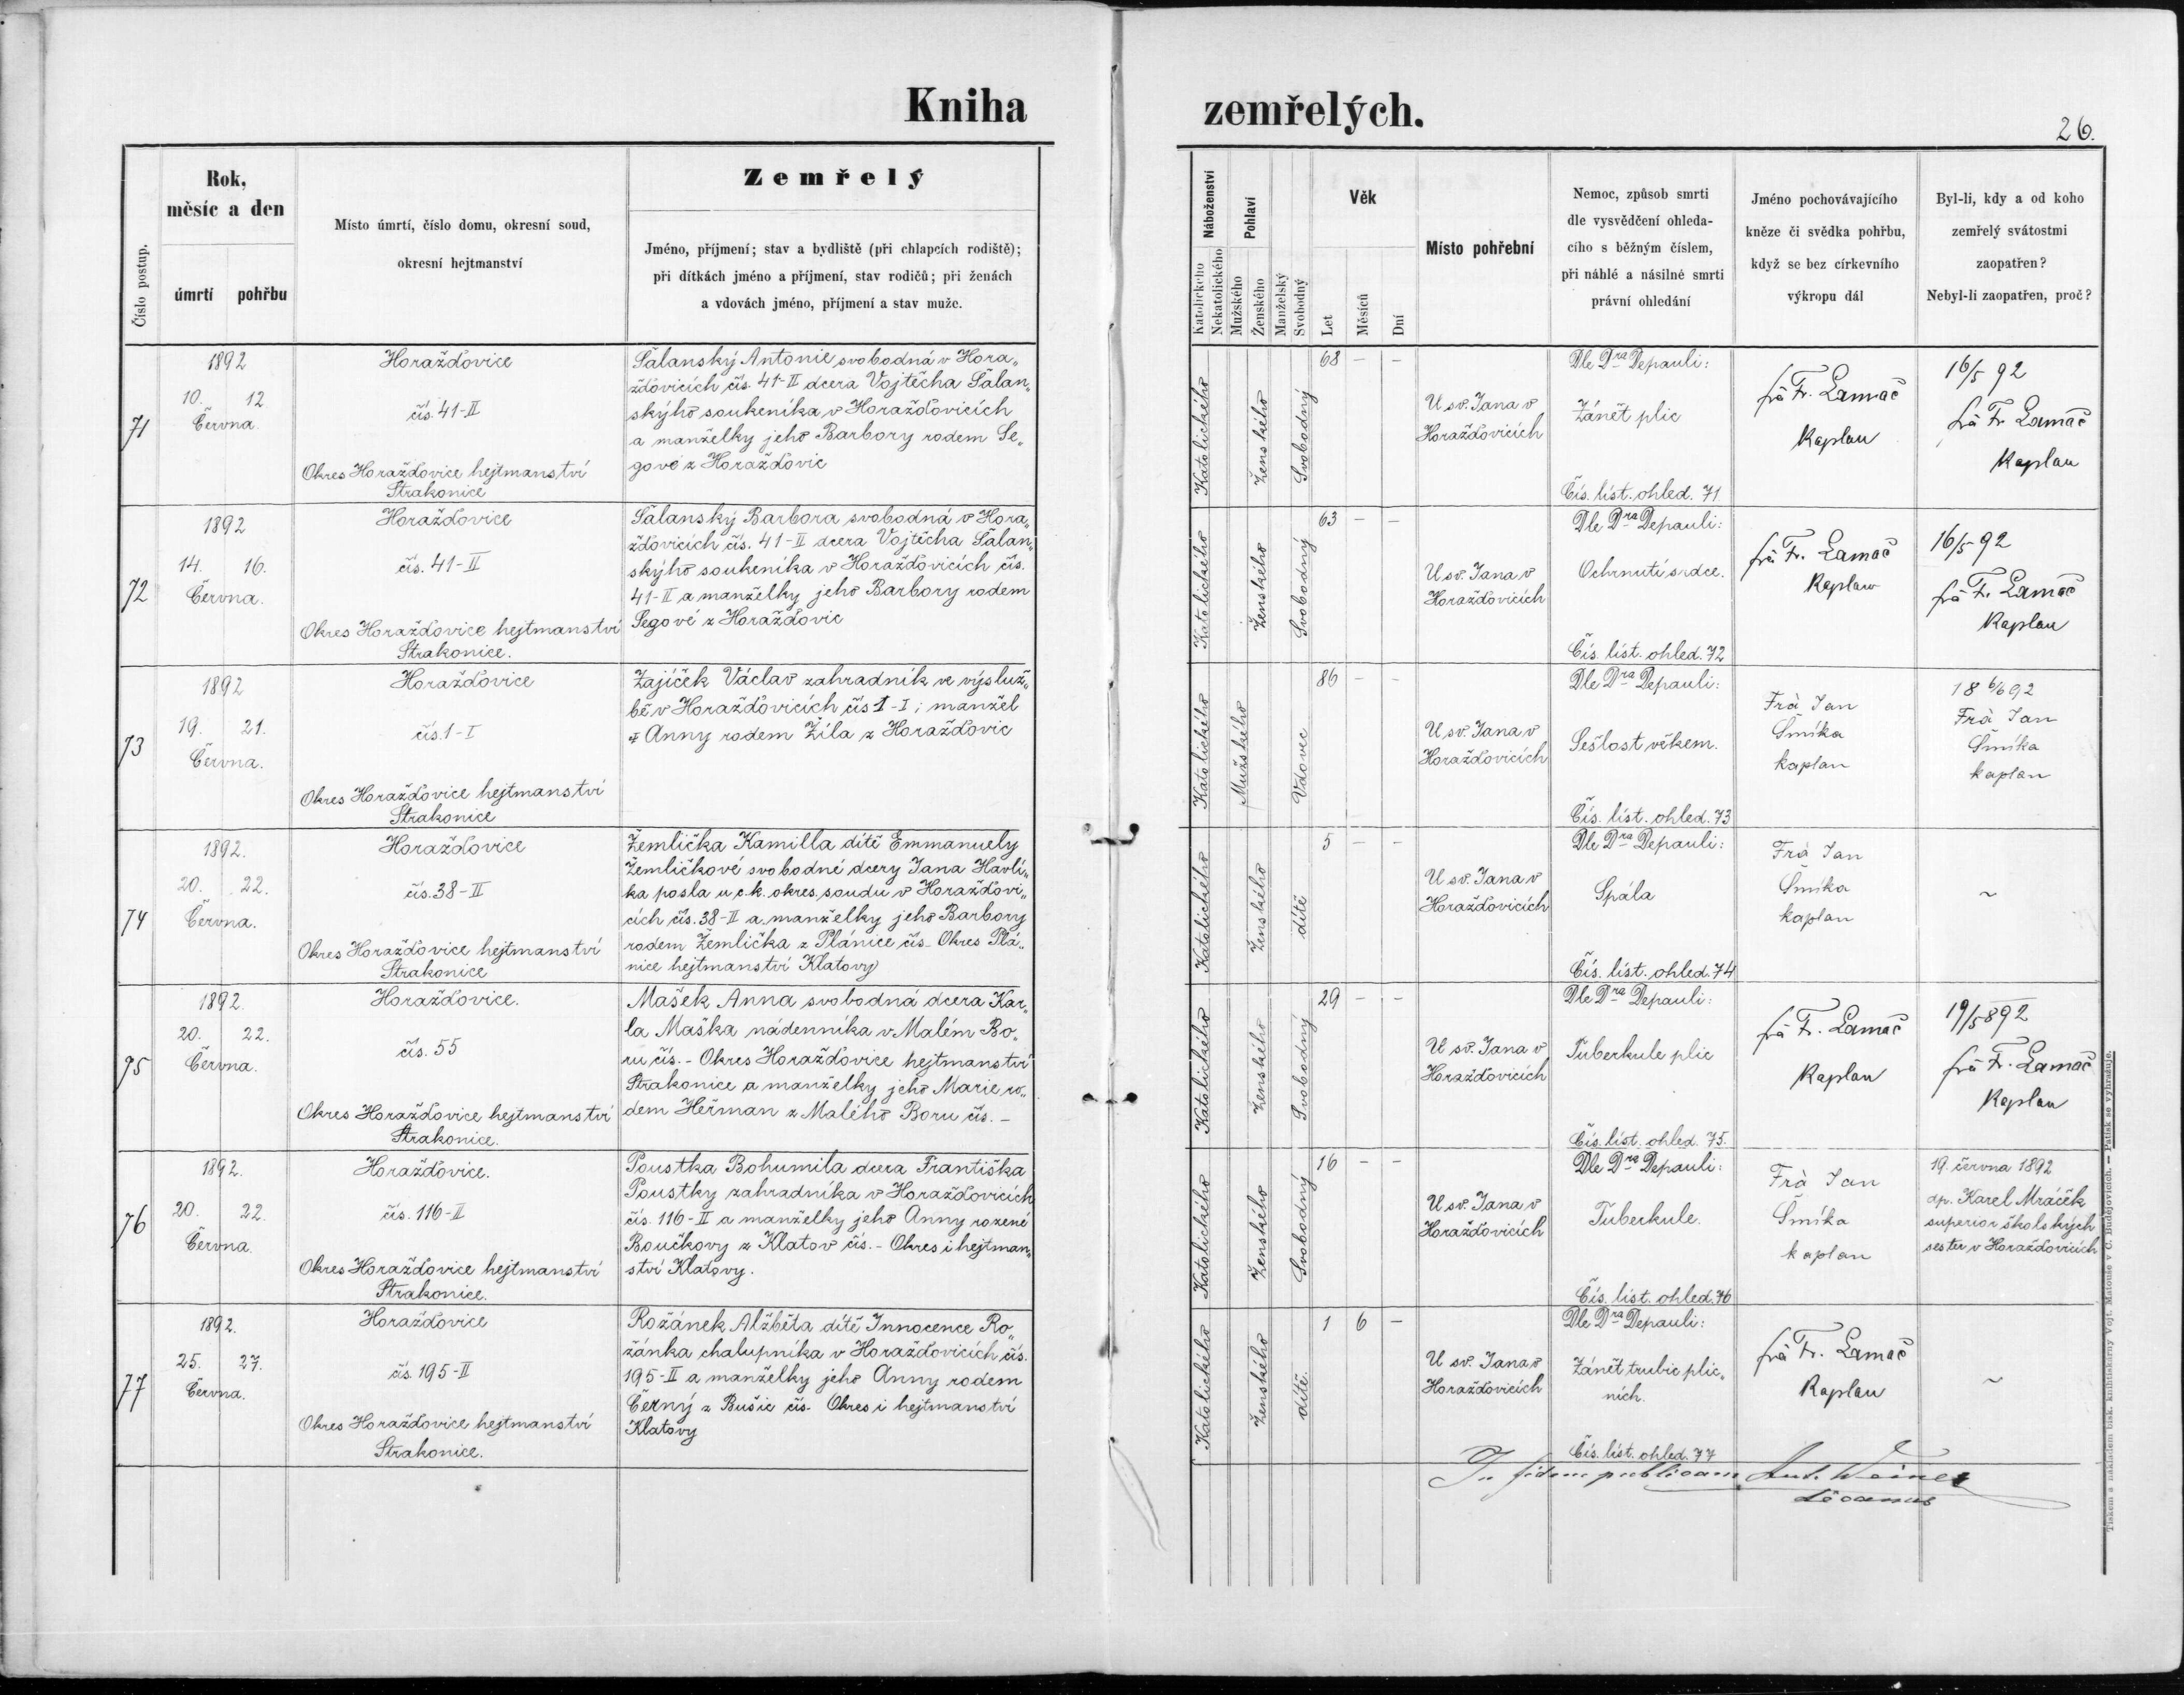 Kniha zemřelých.
26.
Číslo postup.
Rok,
měsíc a den
úmrtí pohřbu
Místo úmrtí, číslo domu, okresní soud,
okresní hejtmanství
Zemřelý
Jméno, příjmení; stav a bydliště (při chlapcích rodiště);
při dítkách jméno a příjmení, stav rodičů; při ženách
a vdovách jméno, příjmení a stav muže.
Náboženství
Katolického
Nekatolického
Pohlaví
Mužského
Ženského
Manželský
Svobodný
Věk
Let
Měsíců
Dní
Místo pohřební
Nemoc, způsob smrti
dle vysvědčení ohleda-
cího s běžným číslem,
při náhlé a násilné smrti
právní ohledání
Jméno pochovávajícího
kněze či svědka pohřbu,
když se bez církevního
výkropu dál
Byl-li, kdy a od koho
zemřelý svátostmi
zaopatřen?
Nebyl-li zaopatřen, proč?
71
1892
10. 12.
Června.
Horažďovice
čís. 41-II
Okres Horažďovice hejtmanství
Strakonice
Šalanský Antonie svobodná v Hora„
žďovicích čís. 41-II dcera Vojtěcha Šalan„
skýho soukeníka v Horažďovicích
a manželky jeho Barbory rodem Še„
gové z Horažďovic
Katolického
Ženského
Svobodný
68 - -
U sv. Jana v
Horažďovicích
Dle Dra Depauli:
Zánět plic
Čís. list. ohled. 71
frà Fr. Lamač
Kaplan
16/5 92
frà Fr. Lamač
Kaplan
72
1892
14. 16.
Června.
Horažďovice
čís. 41-II
Okres Horažďovice hejtmanství
Strakonice.
Šalanský Barbora svobodná v Hora„
žďovicích čís. 41-II dcera Vojtěcha Šalan„
skýho soukeníka v Horažďovicích čís.
41-II a manželky jeho Barbory rodem
Šegové z Horažďovic
Katolického
Ženského
Svobodný
63 - -
U sv. Jana v
Horažďovicích
Dle Dra Depauli:
Ochrnutí srdce.
Čís. list. ohled. 72
frà Fr. Lamač
Kaplan
16/5 92
frà Fr. Lamač
Kaplan
73
1892
19. 21.
Června.
Horažďovice
čís. 1-I
Okres Horažďovice hejtmanství
Strakonice
Zajíček Václav zahradník ve výsluž„
bě v Horažďovicích čís 1-I; manžel
Anny rodem Žíla z Horažďovic
Katolického
Mužského
Vdovec
86 - -
U sv. Jana v
Horažďovicích
Dle Dra Depauli:
Sešlost věkem.
Čís. list. ohled. 73
Frà Jan
Šmíka
kaplan
18 6/6 92
Frà Jan
Šmíka
kaplan
74
1892.
20. 22.
Června.
Horažďovice
čís. 38-II
Okres Horažďovice hejtmanství
Strakonice
Žemlička Kamilla dítě Emmanuely
Žemličkové svobodné dcery Jana Havlí„
ka posla u c.k. okres. soudu v Horažďovi„
cích čís. 38-II a manželky jeho Barbory
rodem Žemlička z Plánice čís- Okres Plá„
nice hejtmanství Klatovy
Katolického
Ženského
dítě
5 - -
U sv. Jana v
Horažďovicích
Dle Dra Depauli:
Spála
Čís. list. ohled. 74
Frà Jan
Šmíka
kaplan
~
75
1892.
20. 22.
Června.
Horažďovice.
čís. 55
Okres Horažďovice hejtmanství
Strakonice.
Mašek Anna svobodná dcera Kar„
la Maška nádenníka v Malém Bo„
ru čís. - Okres Horažďovice hejtmanství
Strakonice a manželky jeho Marie ro„
dem Heřman z Malého Boru čís. -
Katolického
Ženského
Svobodný
29 - -
U sv. Jana v
Horažďovicích
Dle Dra Depauli:
Tuberkule plic
Čís. list. ohled. 75.
frà Fr. Lamač
Kaplan
19/5 892
frà Fr. Lamač
Kaplan
76
1892.
20. 22.
Června.
Horažďovice.
čís. 116-II
Okres Horažďovice hejtmanství
Strakonice.
Poustka Bohumila dcera Františka
Poustky zahradníka v Horažďovicích
čís. 116-II a manželky jeho Anny rozené
Boučkovy z Klatov čís. - Okres i hejtman„
ství Klatovy.
Katolického
Ženského
Svobodný
16 - -
U sv. Jana v
Horažďovicích
Dle Dra Depauli:
Tuberkule.
Čís. list. ohled. 76
Frà Jan
Šmíka
kaplan
19. června 1892
dp. Karel Mráček
superior školských
sester v Horažďovicích
77
1892.
25. 27.
Června.
Horažďovice
čís. 195-II
Okres Horažďovice hejtmanství
Strakonice.
Rožánek Alžběta dítě Innocence Ro„
žánka chalupníka v Horažďovicích čís.
195-II a manželky jeho Anny rodem
Černý z Bušic čís- Okres i hejtmanství
Klatovy
Katolického
Ženského
dítě.
1 6 -
U sv. Jana v
Horažďovicích
Dle Dra Depauli:
Zánět trubic plic„
ních.
Čís. list. ohled. 77
frà Fr. Lamač
Kaplan
~
In fidem publicam Ant. Weiner
Decanus
Tiskem a nákladem tisk. knihtiskárny Vojt. Matouše v Č. Budějovicích. — Patisk se vyhražuje.